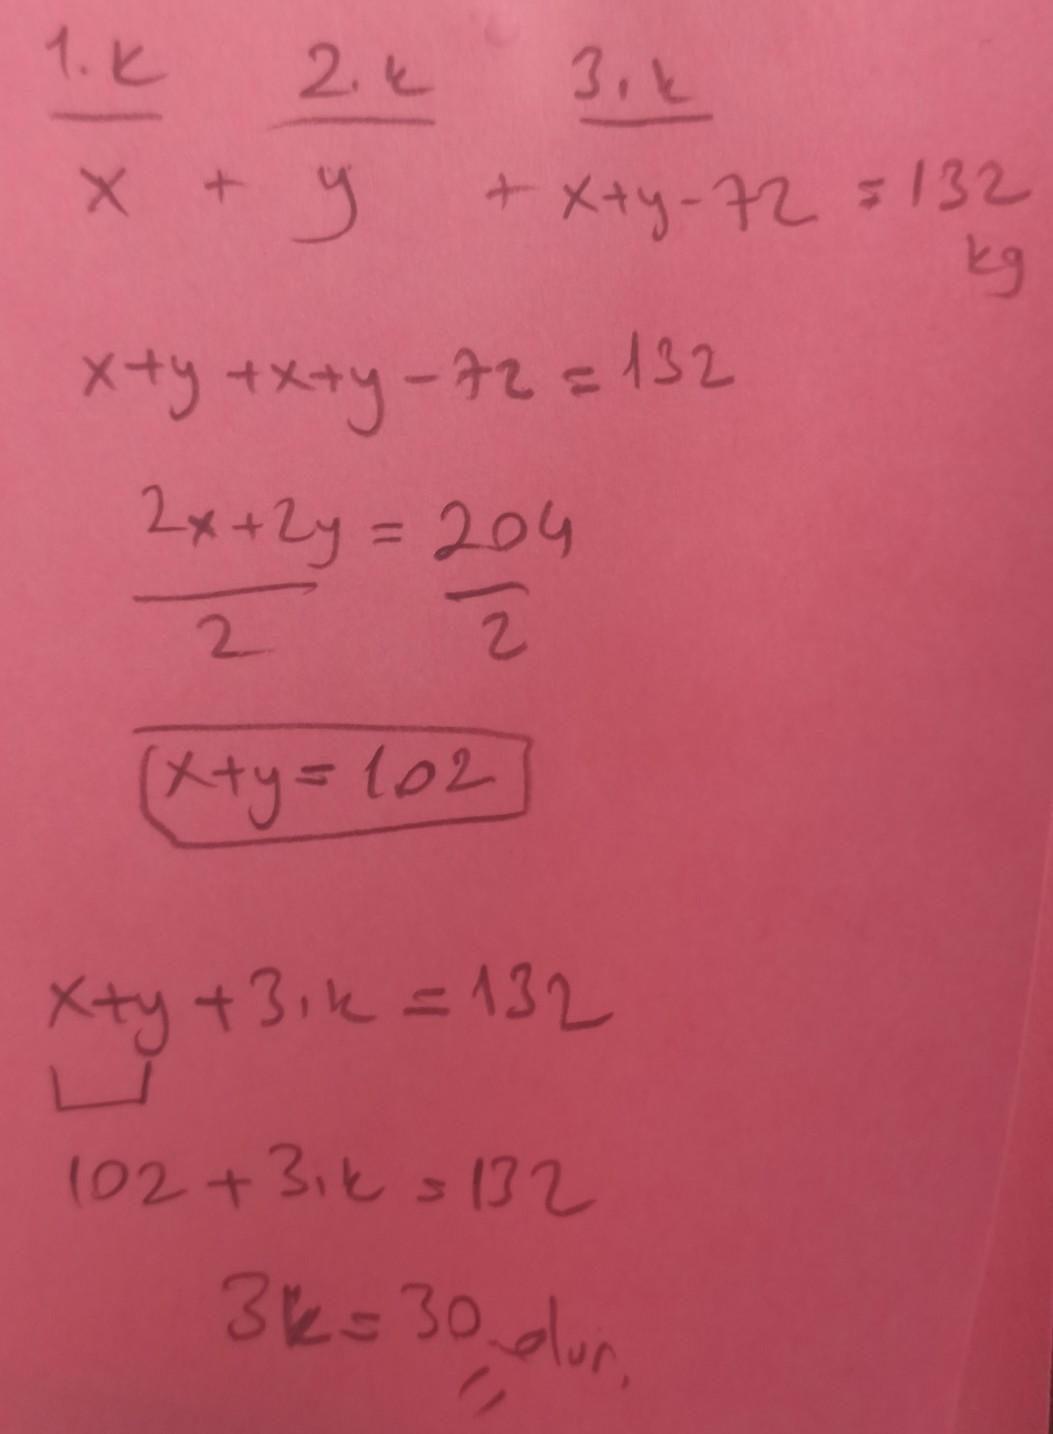 1.k 2.k 3.k
x + y + x+y-72 = 132
kg
x+y+x+y-72=132
2x+2y=204
2 2
x+y=102
x+y+3.k=132
102+3.k=132
3k=30 olur.